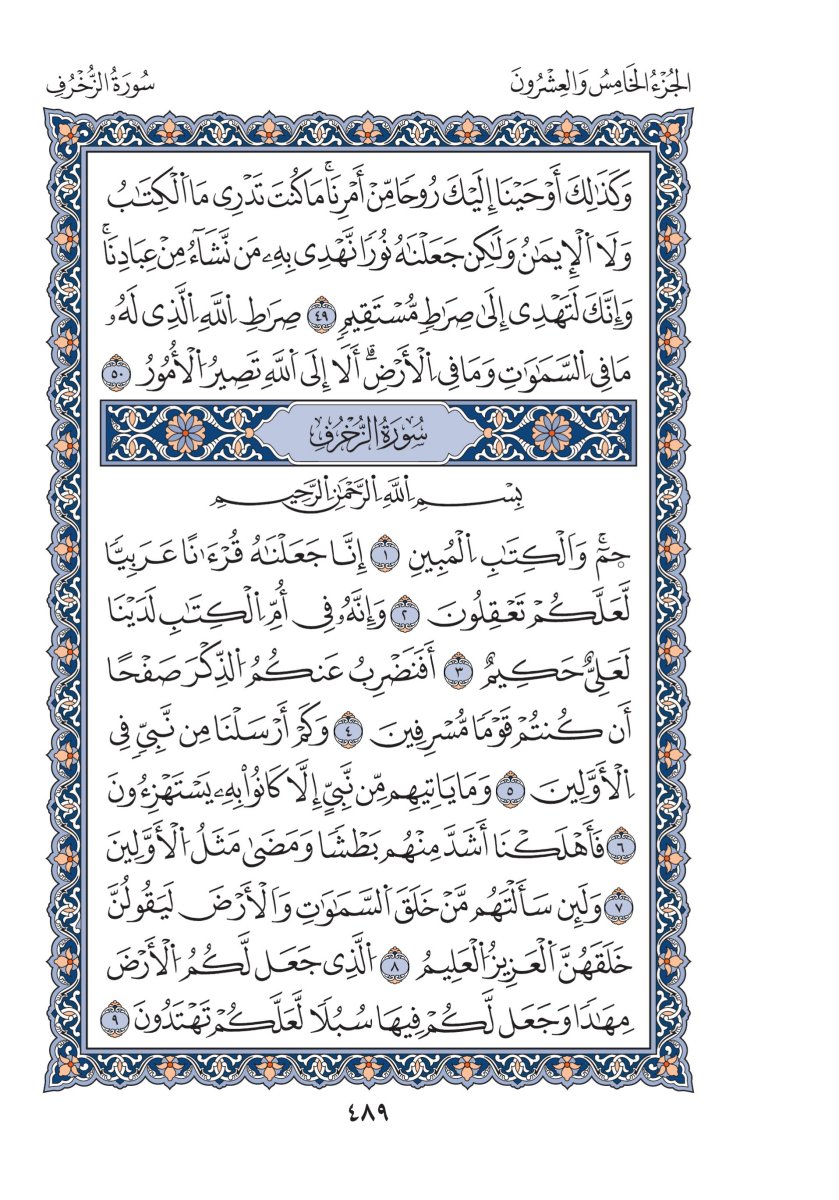 الجُزْءُ الخَامِسُ وَالعِشْرُونَ
سُورَةُ الزُّخْرُفِ
وَكَذَٰلِكَ أَوْحَيْنَا إِلَيْكَ رُوحٗا مِّنْ أَمْرِنَاۚ مَا كُنتَ تَدْرِى مَا اَ۬لْكِتَٰبُ
وَلَا اَ۬لْإِيمَٰنُ وَلَٰكِن جَعَلْنَٰهُ نُورٗا نَّهْدِى بِهِۦ مَن نَّشَآءُ مِنْ عِبَادِنَاۚ
وَإِنَّكَ لَتَهْدِى إِلَىٰ صِرَٰطٖ مُّسْتَقِيمٖ ٤٩ صِرَٰطِ اِ۬للَّهِ اِ۬لَّذِى لَهُۥ
مَا فِى اِ۬لسَّمَٰوَٰتِ وَمَا فِى اِ۬لْأَرْضِۗ أَلَا إِلَى اَ۬للَّهِ تَصِيرُ اُ۬لْأُمُورُ ٥٠
سُورَةُ الزُّخْرُفِ
بِسْمِ اِ۬للَّهِ اِ۬لرَّحْمَٰنِ اِ۬لرَّحِيمِ
حمٓۚ وَالْكِتَٰبِ اِ۬لْمُبِينِ ١ إِنَّا جَعَلْنَٰهُ قُرْءَٰنًا عَرَبِيّٗا
لَّعَلَّكُمْ تَعْقِلُونَ ٢ وَإِنَّهُۥ فِى أُمِّ اِ۬لْكِتَٰبِ لَدَيْنَا
لَعَلِيٌّ حَكِيمٌ ٣ أَفَنَضْرِبُ عَنكُمُ اُ۬لذِّكْرَ صَفْحًا
أَن كُنتُمْ قَوْمٗا مُّسْرِفِينَ ٤ وَكَمْ أَرْسَلْنَا مِن نَّبِيّٖ فِى
اِ۬لْأَوَّلِينَ ٥ وَمَا يَاتِيهِم مِّن نَّبِيٍّ إِلَّا كَانُواْ بِهِۦ يَسْتَهْزِءُونَ
٦ فَأَهْلَكْنَا أَشَدَّ مِنْهُم بَطْشٗا وَمَضَىٰ مَثَلُ اُ۬لْأَوَّلِينَ
٧ وَلَئِن سَأَلْتَهُم مَّنْ خَلَقَ اَ۬لسَّمَٰوَٰتِ وَالْأَرْضَ لَيَقُولُنَّ
خَلَقَهُنَّ اَ۬لْعَزِيزُ اُ۬لْعَلِيمُ ٨ اُ۬لَّذِى جَعَل لَّكُمُ اُ۬لْأَرْضَ
مِهَٰدٗا وَجَعَل لَّكُمْ فِيهَا سُبُلٗا لَّعَلَّكُمْ تَهْتَدُونَ ٩
٤٨٩